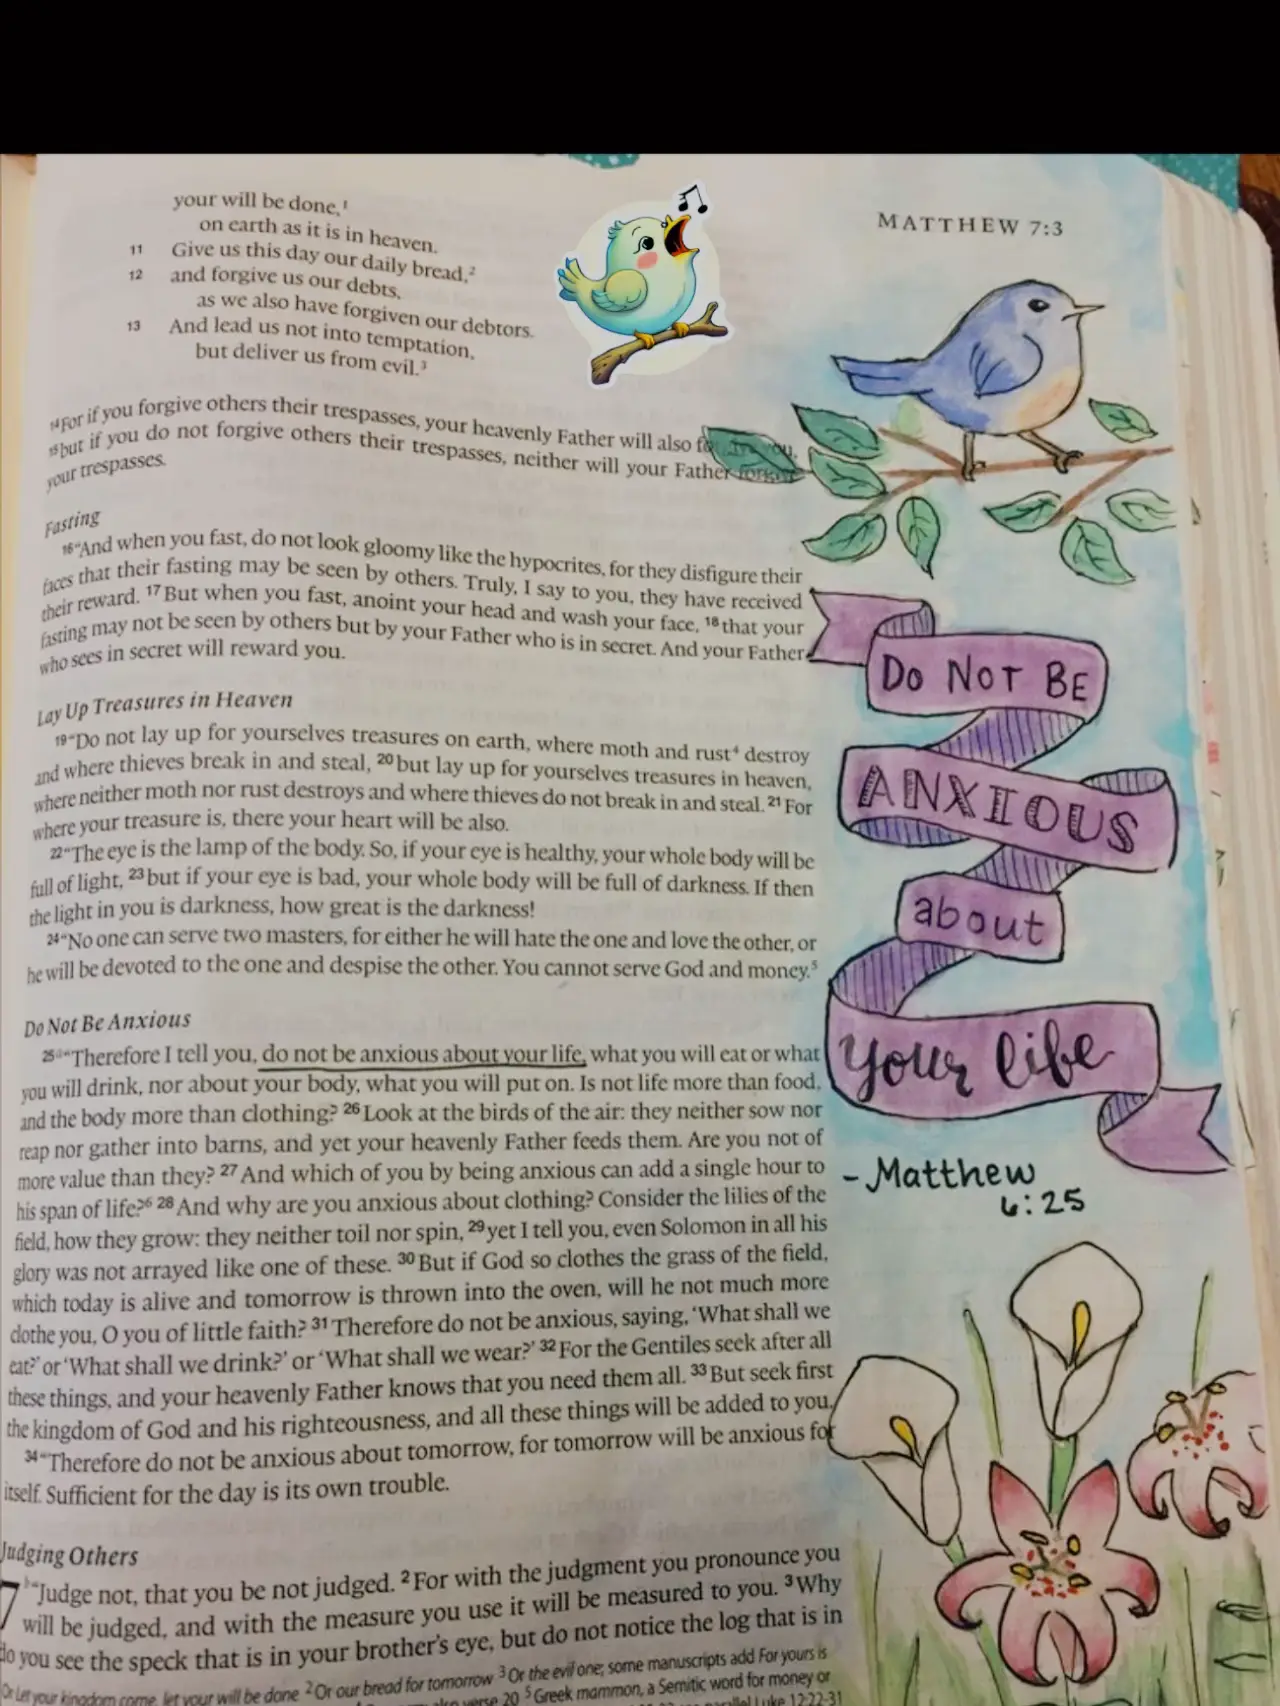 MATTHEW 7:3
your will be done,¹
on earth as it is in heaven.
11 Give us this day our daily bread,²
12 and forgive us our debts,
as we also have forgiven our debtors.
13 And lead us not into temptation,
but deliver us from evil.³
¹⁴For if you forgive others their trespasses, your heavenly Father will also you,
¹⁵but if you do not forgive others their trespasses, neither will your Father forgive
your trespasses.
Fasting
¹⁶“And when you fast, do not look gloomy like the hypocrites, for they disfigure their
faces that their fasting may be seen by others. Truly, I say to you, they have received
their reward. ¹⁷But when you fast, anoint your head and wash your face, ¹⁸that your
fasting may not be seen by others but by your Father who is in secret. And your Father
who sees in secret will reward you.
Lay Up Treasures in Heaven
¹⁹“Do not lay up for yourselves treasures on earth, where moth and rust⁴ destroy
and where thieves break in and steal, ²⁰but lay up for yourselves treasures in heaven,
where neither moth nor rust destroys and where thieves do not break in and steal. ²¹For
where your treasure is, there your heart will be also.
²²“The eye is the lamp of the body. So, if your eye is healthy, your whole body will be
full of light, ²³but if your eye is bad, your whole body will be full of darkness. If then
the light in you is darkness, how great is the darkness!
²⁴“No one can serve two masters, for either he will hate the one and love the other, or
he will be devoted to the one and despise the other. You cannot serve God and money.⁵
Do Not Be Anxious
²⁵“Therefore I tell you, do not be anxious about your life, what you will eat or what
you will drink, nor about your body, what you will put on. Is not life more than food,
and the body more than clothing? ²⁶Look at the birds of the air: they neither sow nor
reap nor gather into barns, and yet your heavenly Father feeds them. Are you not of
more value than they? ²⁷And which of you by being anxious can add a single hour to
his span of life?⁶ ²⁸And why are you anxious about clothing? Consider the lilies of the
field, how they grow: they neither toil nor spin, ²⁹yet I tell you, even Solomon in all his
glory was not arrayed like one of these. ³⁰But if God so clothes the grass of the field,
which today is alive and tomorrow is thrown into the oven, will he not much more
clothe you, O you of little faith? ³¹Therefore do not be anxious, saying, ‘What shall we
eat?’ or ‘What shall we drink?’ or ‘What shall we wear?’ ³²For the Gentiles seek after all
these things, and your heavenly Father knows that you need them all. ³³But seek first
the kingdom of God and his righteousness, and all these things will be added to you.
³⁴“Therefore do not be anxious about tomorrow, for tomorrow will be anxious for
itself. Sufficient for the day is its own trouble.
Judging Others
7 “Judge not, that you be not judged. ²For with the judgment you pronounce you
will be judged, and with the measure you use it will be measured to you. ³Why
do you see the speck that is in your brother’s eye, but do not notice the log that is in
Or Let your kingdom come, let your will be done ²Or our bread for tomorrow ³Or the evil one; some manuscripts add For yours is
verse 20 ⁵Greek mammon, a Semitic word for money or
parallel Luke 12:22-31
Do NOT BE
ANXIOUS
about
Your life
- Matthew
6:25